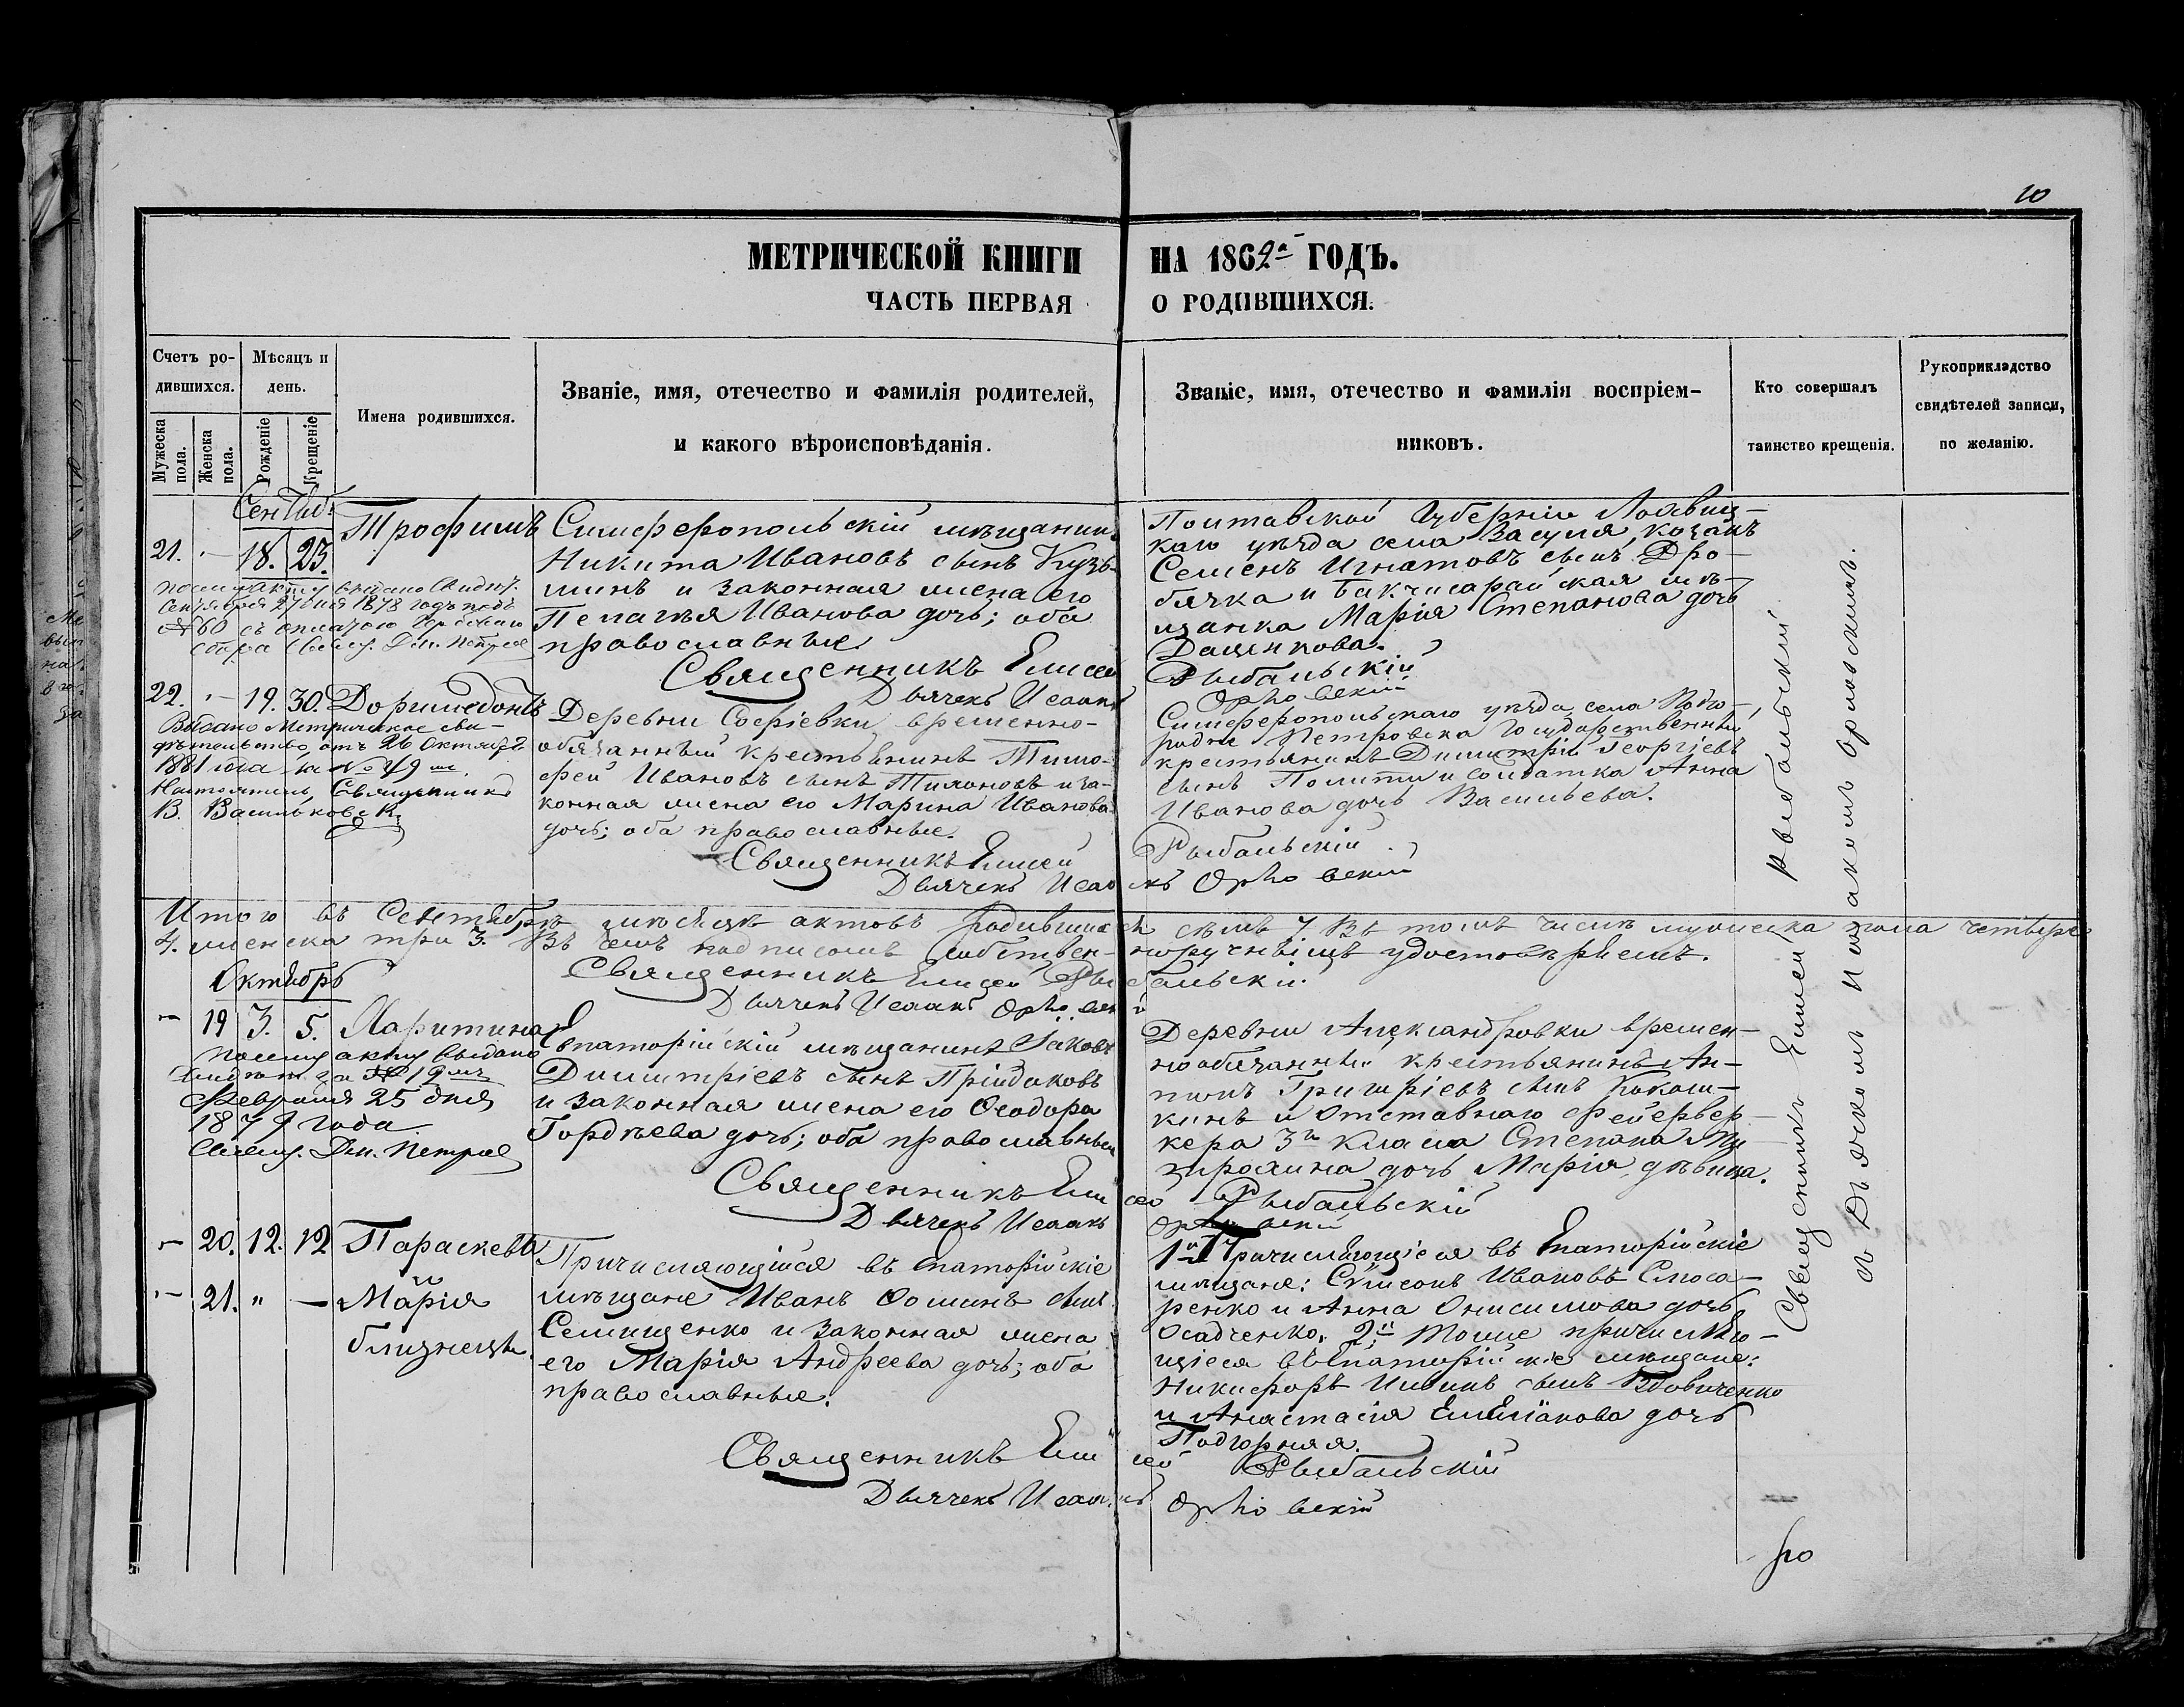 10
МЕТРИЧЕСКОЙ КНИГИ НА 1862ᵃ ГОДЪ.
ЧАСТЬ ПЕРВАЯ О РОДИВШИХСЯ.
Счетъ родившихся.
Мужеска пола.
Женска пола.
Мѣсяцъ и день.
Рожденіе
Крещеніе
Имена родившихся.
Званіе, имя, отечество и фамилія родителей,
и какого вѣроисповѣданія.
Званіе, имя, отечество и фамилія воспріем-
никовъ.
Кто совершалъ
таинство крещенія.
Рукоприкладство
свидѣтелей записи,
по желанію.
21. 18. 23.
Трофимъ
Симферопольскій мѣщанинъ
Никита Ивановъ сынъ Кузь-
минъ и законная жена его
Пелагѣя Иванова дочь; оба
православные.
Священникъ Елисей
Дьячекъ Исаакъ
Полтавской Губерніи
каго уѣзда села Засулья, козакъ
Семенъ Игнатовъ сынъ Дро-
бячка и Бакчисарайская мѣ-
щанка Марія Степанова дочь
Дащенкова.
Рыбальскій
Орловскій
Сентября 27 дня 1878 года подъ
№ 60
22. 19. 30. Доримедонтъ
Выдано Метрическое сви-
дѣтельство отъ 26 Октября
1881 года за № 49
Настоятель, Священникъ
В. Васильковскій
Деревни Софіевки, временно-
обязанный крестьянинъ Тимо-
фей Ивановъ сынъ Тихоновъ и за-
конная жена его Марина Иванова
дочь; оба православные.
Священникъ Елисей
Дьячекъ Исаакъ
Симферопольскаго уѣзда, села
Петровска Государственный
крестьянинъ Димитрій Георгіевъ
сынъ и солдатка Анна
Иванова дочь Васильева.
Рыбальскій
Орловскій
Итого въ Сентябрѣ мѣсяцѣ актовъ родившихся семь 7. Въ томъ числѣ мужеска пола четыре
4. женска три 3. Въ чемъ подписомъ собствен-норучнымъ удостовѣряемъ.
Священникъ Елисей Рыбальскій.
Дьячекъ Исаакъ Орловскій
Октябрь
19 3. 5. Харитина
По сему акту выдано
за № 19
Февраля 25 дня
1879 года.
Свящ. Дим. Петров
Евпаторійскій мѣщанинъ Іаковъ
Димитріевъ сынъ Прійдаковъ
и законная жена его Ѳеодора
Гордѣева дочь; оба православные
Священникъ Елисей
Дьячекъ Исаакъ
Деревни Александровки времен-
нообязанный крестьянинъ Ан-
типъ Григоріевъ сынъ Кокош-
кинъ и отставнаго фейервер-
кера 3го класса Степана
дочь Марія дѣвица.
Рыбальскій
Орловскій
20. 12. 12 Параскева
21. " — и Марія
близнецы.
Причисляющійся въ Евпаторійскіе
мѣщане Иванъ Ѳоминъ сынъ
Семищенко и законная жена
его Марія Андреева дочь; оба
православные.
Священникъ Елисей
Дьячекъ Исаакъ
1й Причисляющіеся въ Евпаторійскіе
мѣщане: Симеонъ Ивановъ Слюса-
ренко и Анна Онисимова дочь
Осадченко. 2й тоже причисляю-
щіеся въ Евпаторійскіе мѣщане:
Никифоръ сынъ Вдовиченко
и Анастасія Емельянова дочь
Подгорная.
Рыбальскій
Орловскій
Священникъ Елисей Рыбальскій
съ Дьячкомъ Исаакомъ Орловскимъ.